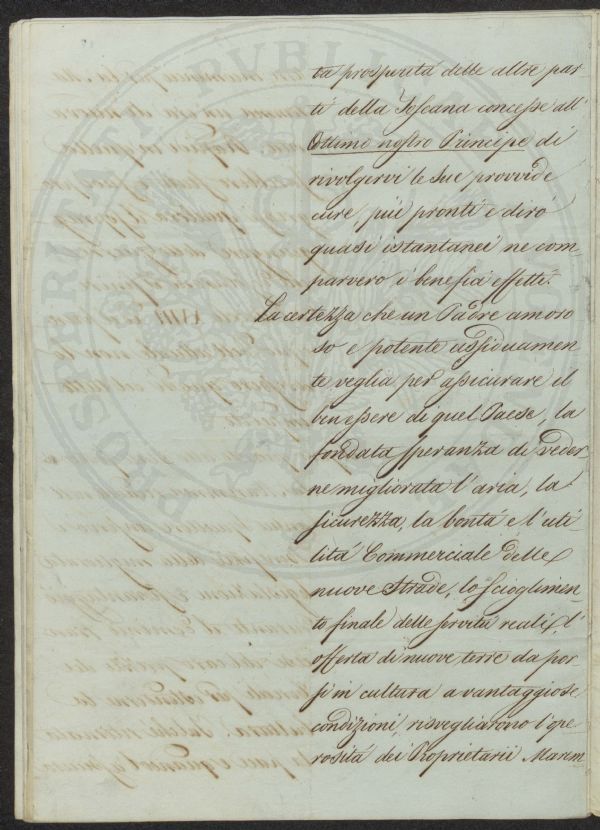 ta prosperità delle altre par
ti della Toscana concesse all'
Ottimo nostro Principe di
rivolgervi le sue provvide
cure più pronti e dirò
quasi istantanei ne com
parvero i benefici effetti.
La certezza che un Padre amoro
so e potente assiduamen
te veglia per assicurare il
ben essere di quel Paese, la
fondata speranza di veder
ne migliorata l'aria, la
sicurezza, la bontà e l'uti
lità Commerciale delle
nuove Strade, lo scioglimen
to finale delle servitù reali, l'
offerta di nuove terre da por
si in cultura a vantaggiose
condizioni, risvegliarono l'ope
rosità dei Proprietarii Marem